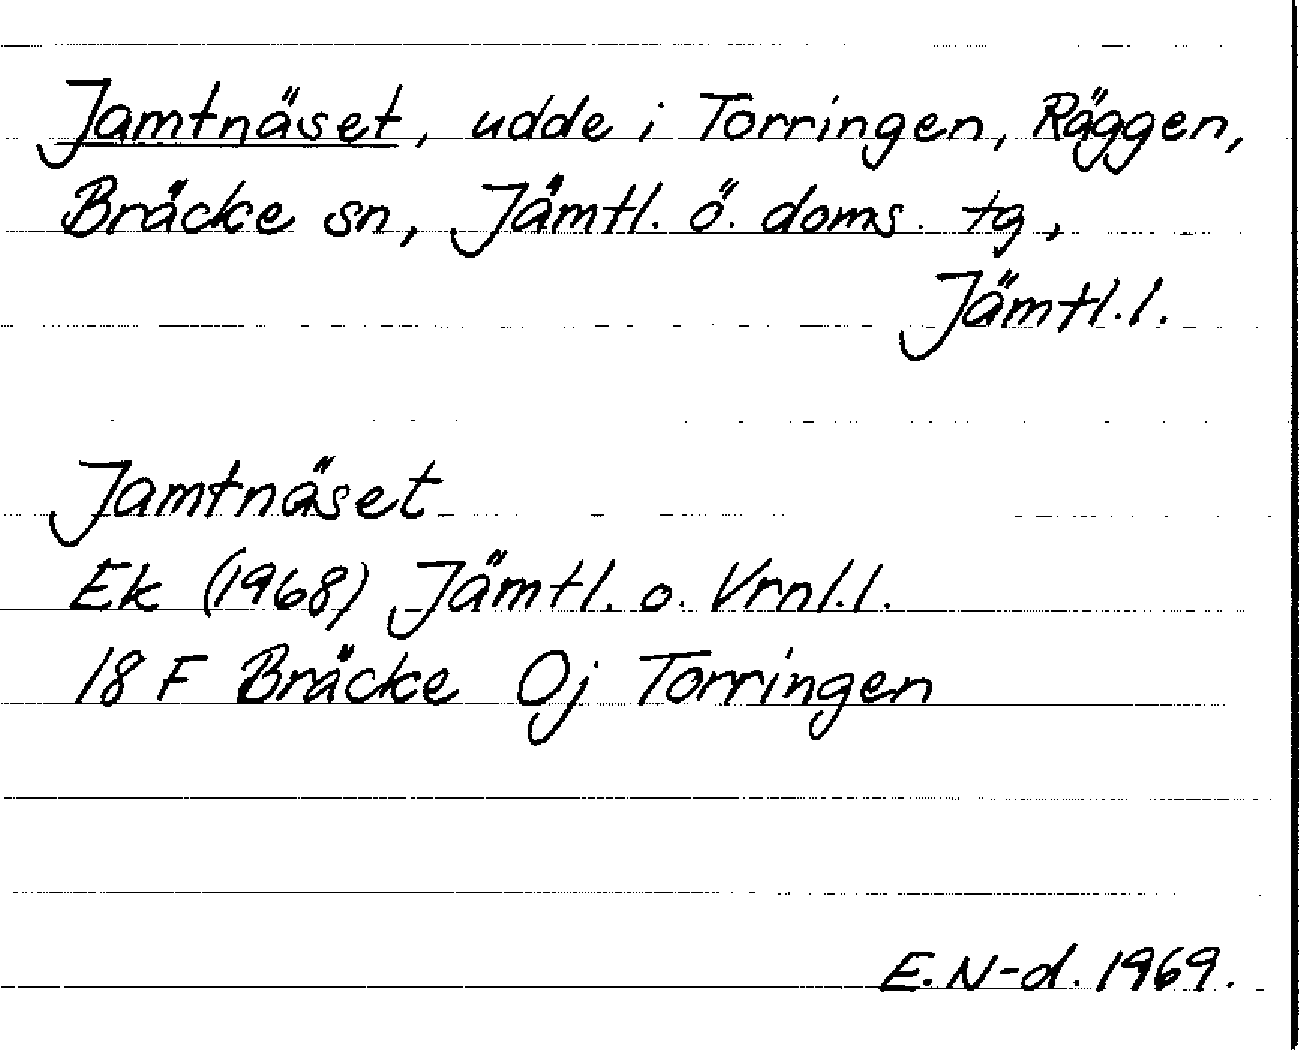 Jamtnäset, udde i Torringen, Räggen,
Bräcke sn, Jämtl. ö. doms. tg,
Jämtl.l.
Jamtnäset
Ek (1968) Jämtl. o. Vrnl.l.
18 F Bräcke Oj Torringen
E. N-d. 1969.